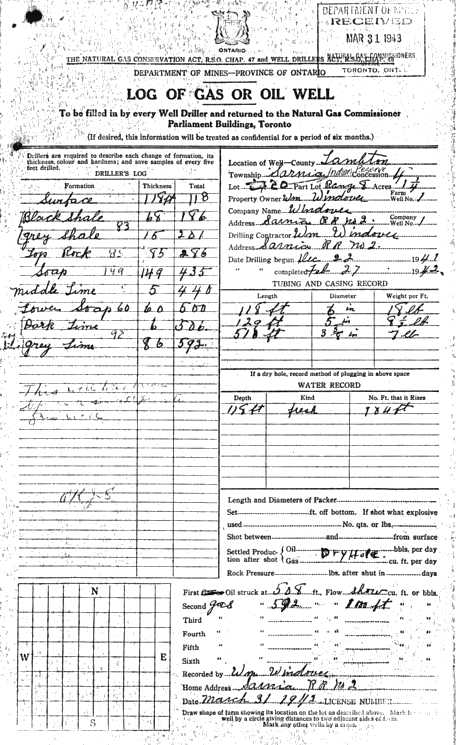 DEPARTMENT OF MINES
RECEIVED
MAR 31 1943
NATURAL GAS COMMISSIONERS
TORONTO, ONT.
ONTARIO
THE NATURAL GAS CONSERVATION ACT, R.S.O. CHAP. 47 and WELL DRILLERS ACT, R.S.O. CHAP. 48
DEPARTMENT OF MINES—PROVINCE OF ONTARIO
LOG OF GAS OR OIL WELL
To be filled in by every Well Driller and returned to the Natural Gas Commissioner
Parliament Buildings, Toronto
(If desired, this information will be treated as confidential for a period of six months.)
Drillers are required to describe each change of formation, its
thickness, colour and hardness; and save samples of every five
feet drilled.
DRILLER'S LOG
Formation Thickness Total
Surface 118ft 118
Black shale 68 186
grey shale 83 15 201
Top Rock 85 85 286
Soap 149 149 435
middle Lime 5 440
Lower Soap 60 60 500
Dark Lime 6 506
grey Lime 92 86 592
This well has
O.K. J-S
Location of Well—County Lambton
Township Sarnia Indian Reserve Concession 4
Lot Part Lot Range 8 Acres 14
Property Owner Wm Windover Farm Well No. 1
Company Name Windover
Address Sarnia RR no 2. Company Well No. 1
Drilling Contractor Wm Windover
Address Sarnia RR no 2.
Date Drilling begun Dec 22 1941
" " completed Feb 27 1942
TUBING AND CASING RECORD
Length Diameter Weight per Ft.
118 ft 6 in 18 lb
129 ft 5 in 8½ lb
ft in 7 lb
If a dry hole, record method of plugging in above space
WATER RECORD
Depth Kind No. Ft. that it Rises
118 ft fresh 104 ft
Length and Diameters of Packer
Set ft. off bottom. If shot what explosive
used No. qts. or lbs.
Shot between and from surface
Settled Production after shot { Oil Dry Hole. bbls. per day
Gas cu. ft. per day
Rock Pressure lbs. after shut in days
First Oil struck at 508 ft., Flow show cu. ft. or bbls.
Second gas " 592 " 1000 ft " "
Third " " " " "
Fourth " " " " "
Fifth " " " " "
Sixth " " " " "
Recorded by Wm Windover
Home Address Sarnia RR No 2
Date March 31 1942 LICENSE NUMBER
Draw shape of farm showing its location on the lot as described above. Mark
well by a circle giving distances to two adjacent sides of farm.
Mark any other wells by a cross.
N
W
E
S